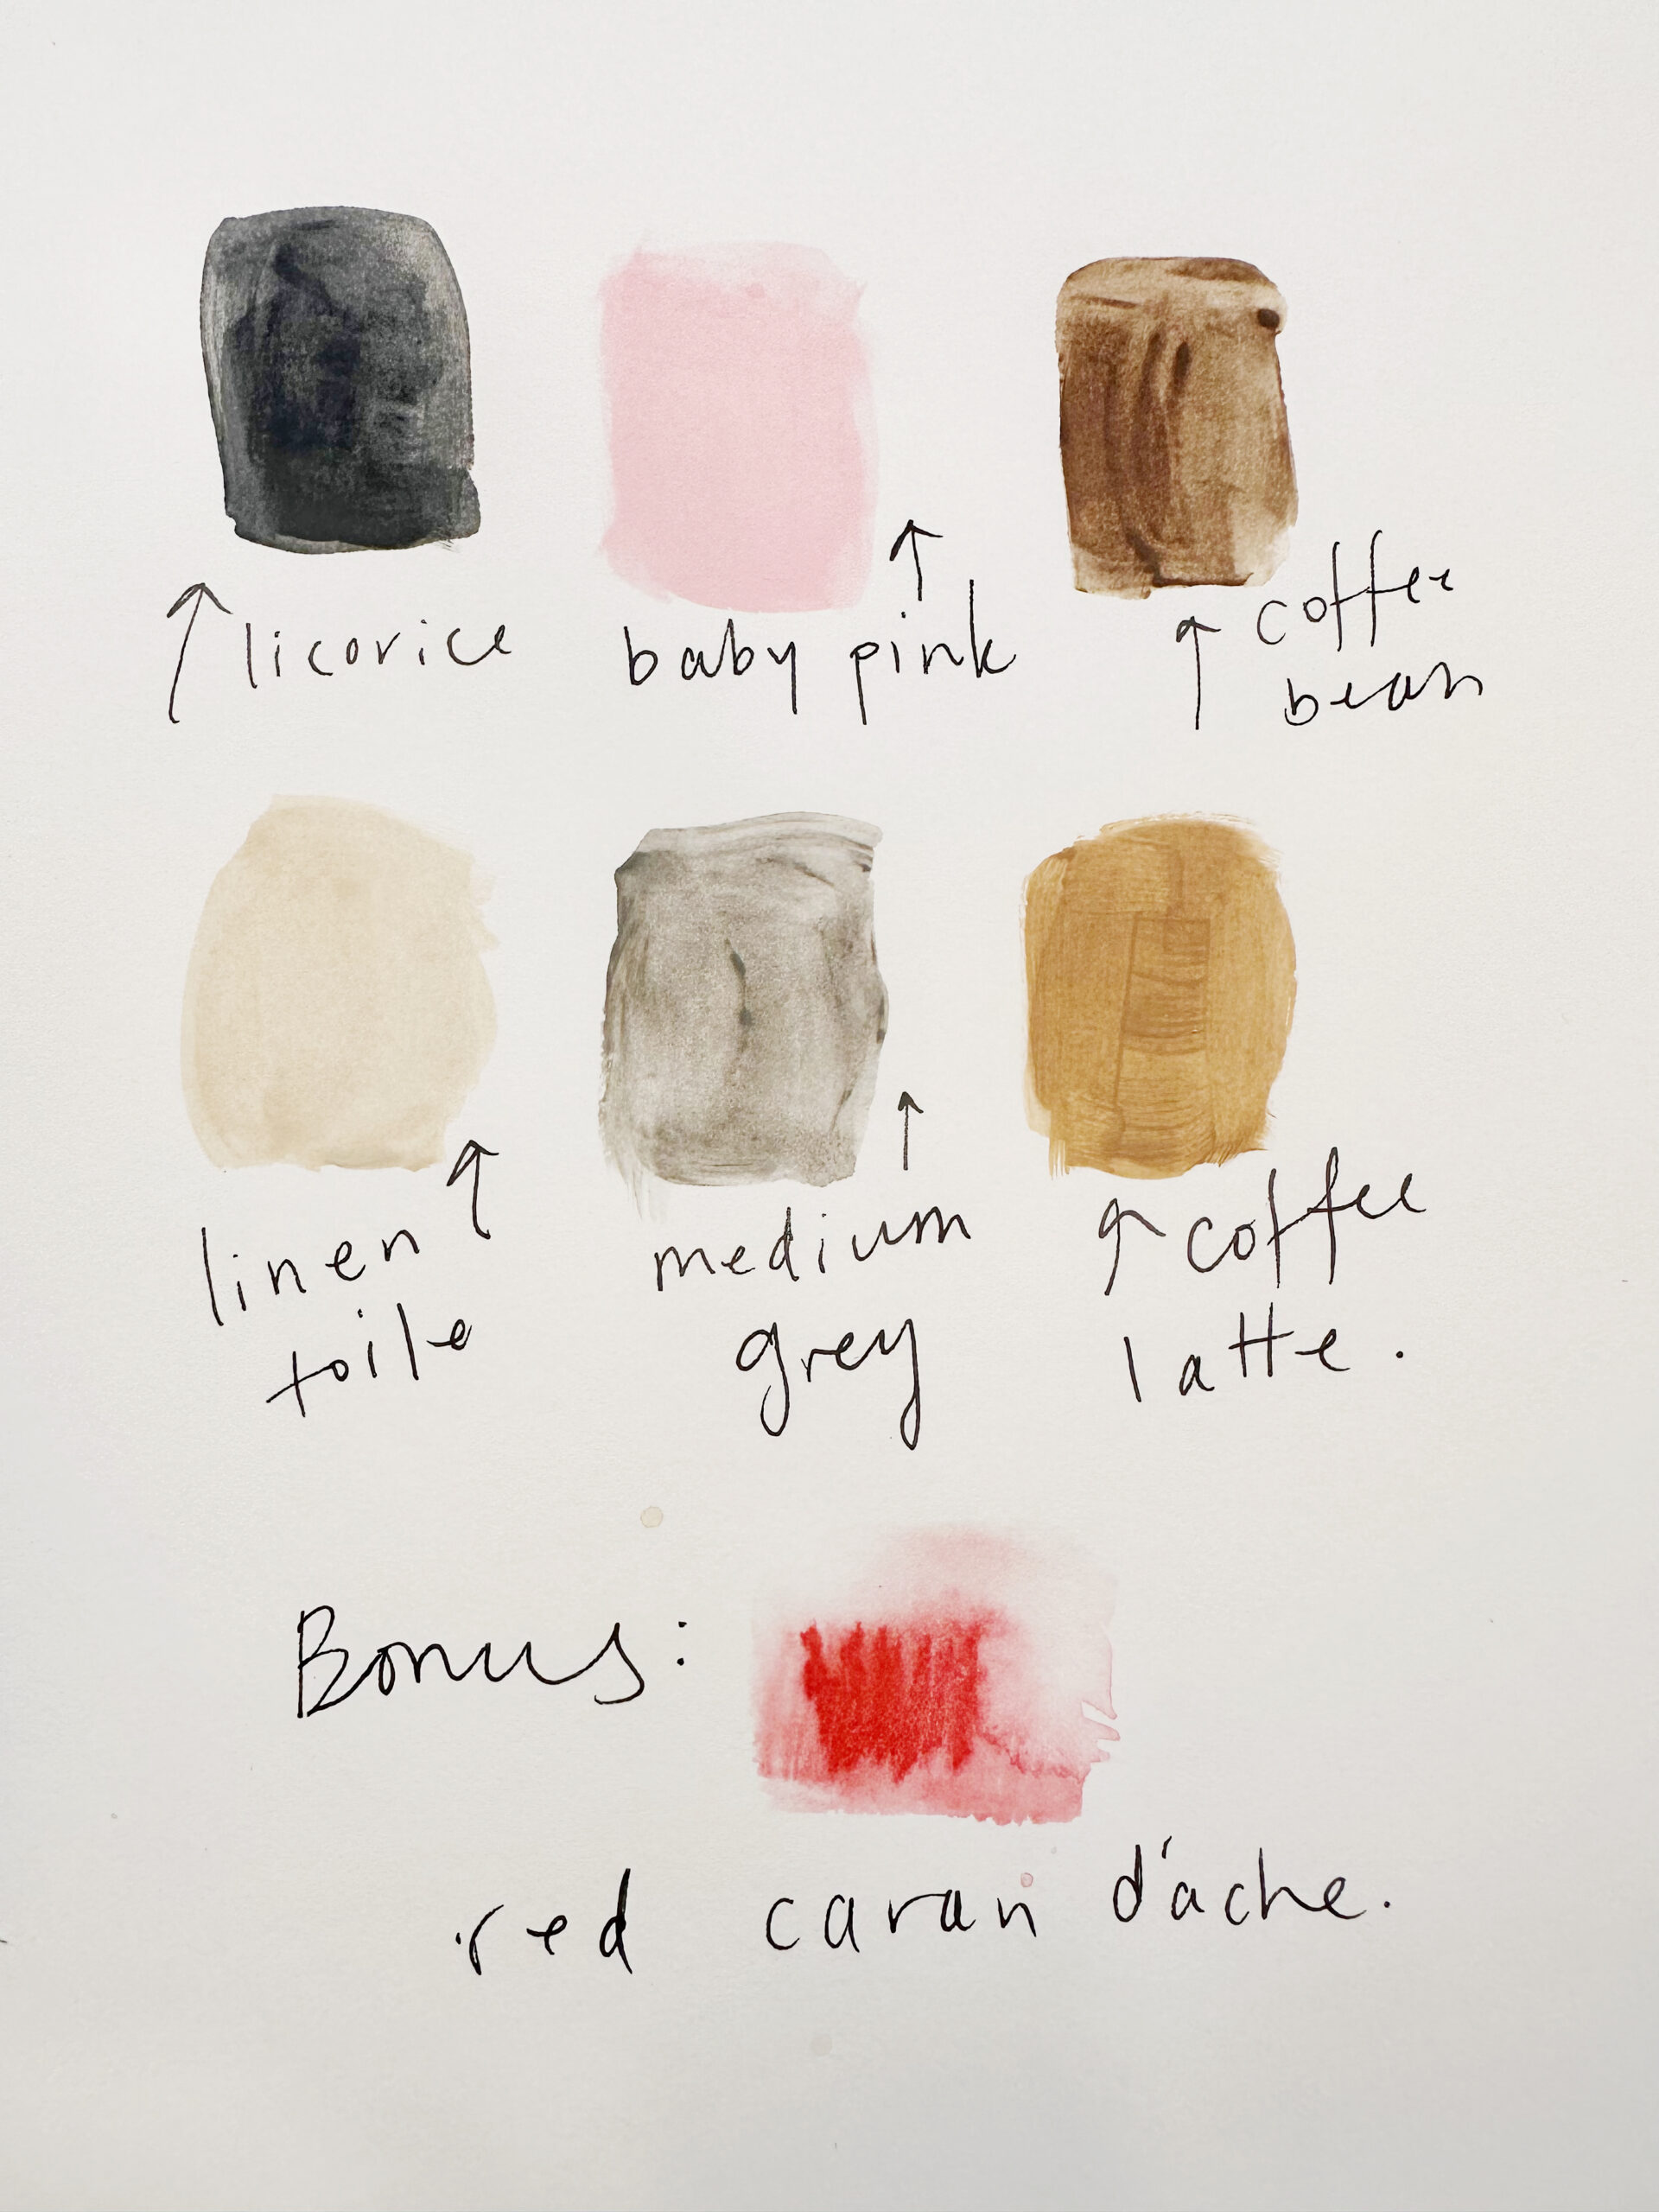 licorice
baby pink
coffee
bean
linen
toile
medium
grey
coffee
latte.
Bonus:
red caran d'ache.